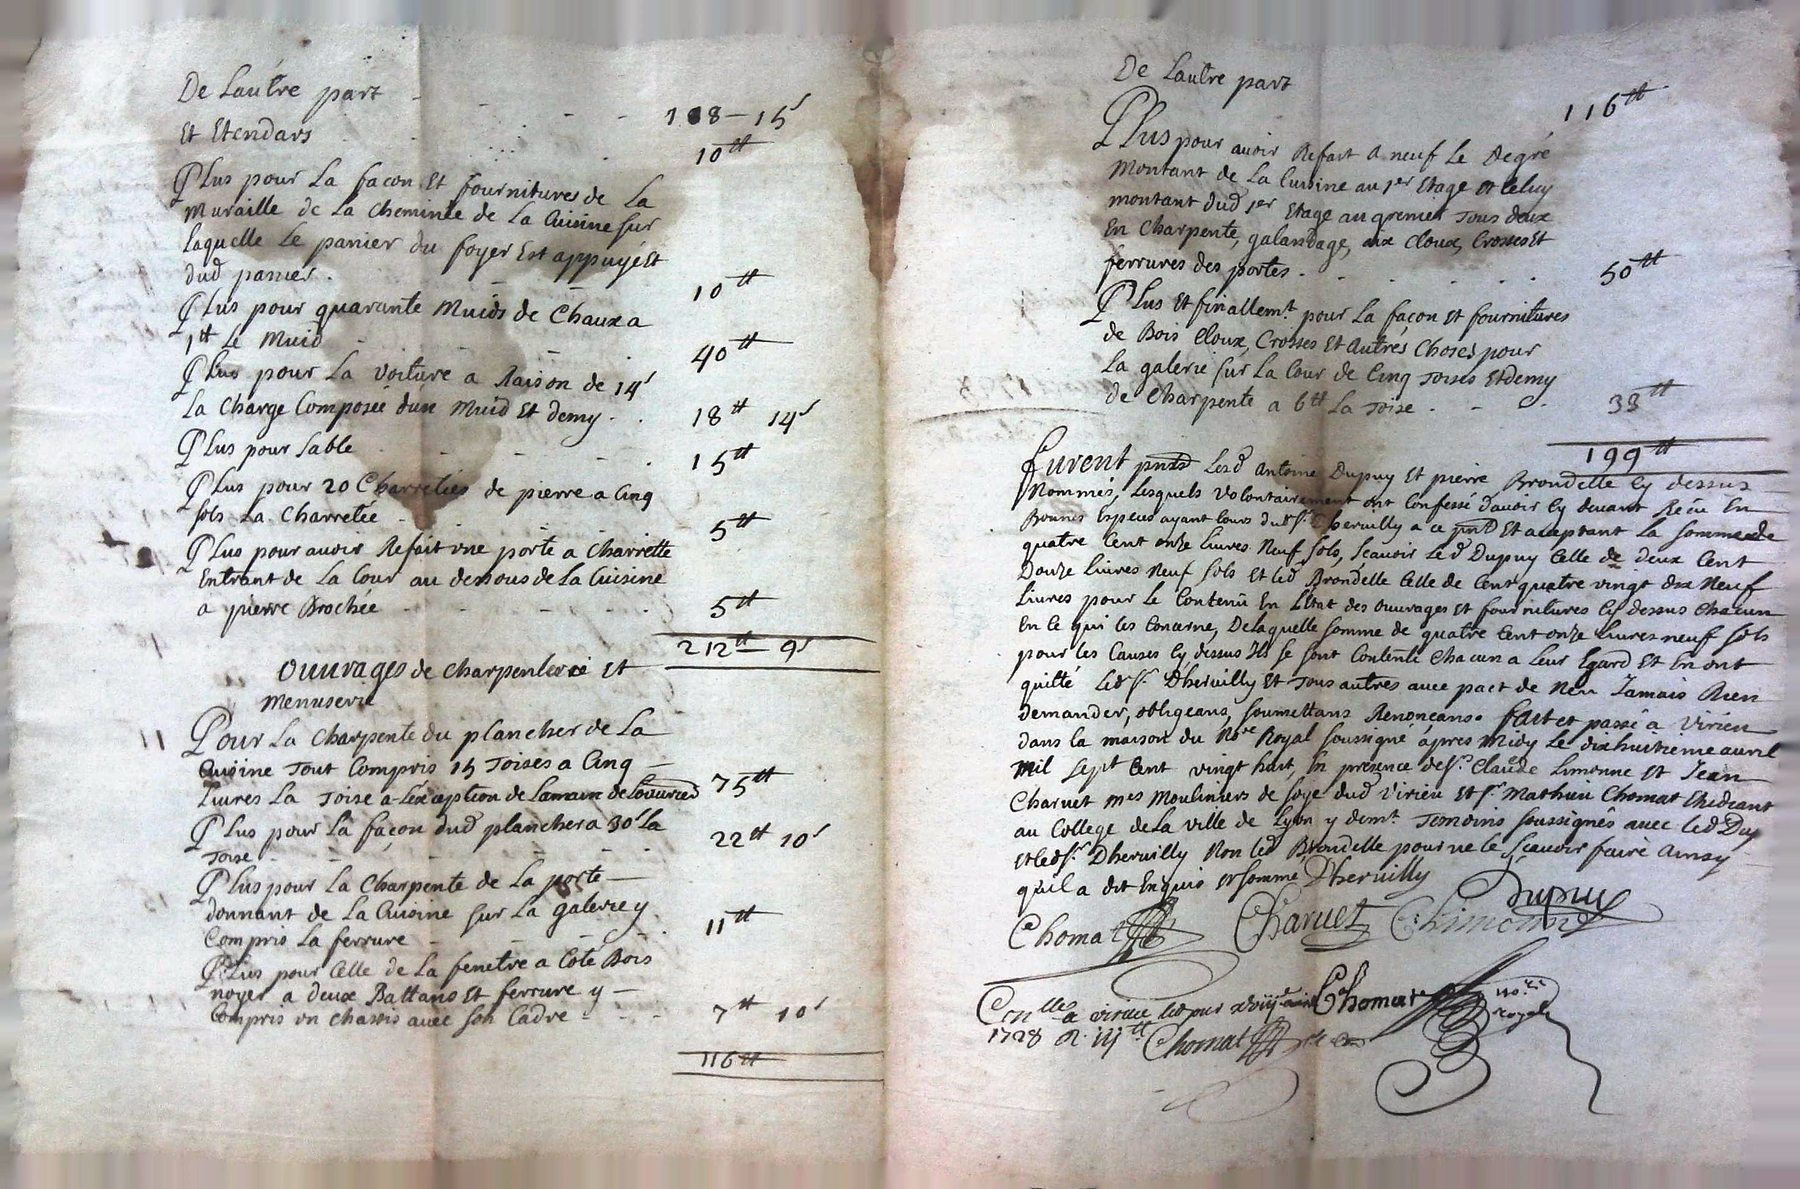 De Lautre part - - - - 108 - 15s
Et Etendars . . . 10tt
Plus pour La façon Et fournitures de La
Muraille de La cheminée de La Cuisine sur
Laquelle Le panier du foyer Est appuyé Et
dud panier . - - 10tt
Plus pour quarante Muids de Chaux a
1tt Le Muid - - 40tt
Plus pour La Voiture a Raison de 14s
La Charge Composée dun Muid Et demy . . 18tt 14s
Plus pour Sable - - - . 15tt
Plus pour 20 Charretées de pierre a Cinq
sols La Charretée - - 5tt
Plus pour avoir Refait une porte a Charrette
Entrant de La Cour au dessous de La Cuisine
a pierre Brochée - - - . 5tt
212tt - 9s
Ouvrages de Charpenterie et
Menuserie
Pour La Charpente du plancher de La
Cuisine Tout Compris 15 Toises a Cinq -
Livres La Toise a Lexception de Lamain de Louvrier 75tt
Plus pour La façon dud plancher a 30s La
Toise - - - - 22tt 10s
Plus pour La Charpente de La porte -
donnant de La Cuisine sur La galerie y
Compris La ferrure - - - . 11tt
Plus pour Celle de La fenetre a Coté Bois
noyer a deux Battans Et ferrure y -
Compris un chassis avec son Cadre - - - 7tt 10s
116tt
De Lautre part 116tt
Plus pour avoir Refait a neuf Le degré
Montant de La Cuisine au 1er Etage Et Celuy
montant dud 1er Etage au grenier Tous deux
En Charpente, galandage, aix Cloux, Crosses Et
ferrures des portes . - - - - 50tt
Plus Et finallemt. pour La façon Et fournitures
de Bois Cloux, Crosses Et Autres Choses pour
La galerie sur La Cour de Cinq Toises Et demy
de Charpente a 6tt La Toise . - . 33tt
199tt
Furent pnts Lesd Antoine Dupuy Et pierre Brondelle Cy dessus
Nommés, Lesquels Volontairement ont Confessé d'avoir Cy devant Réçu En
Bonnes Especes ayant Cours dud Sr. Dhervilly a ce pnt Et aceptant La Somme de
quatre Cent onze Livres Neuf Sols, Sçavoir Led Dupuy Celle de deux Cent
Douze Livres Neuf Sols Et Led Brondelle Celle de Cent quatre vingt dix Neuf
Livres pour Le Contenû En L'Etat des ouvrages Et fournitures Cy dessus Chacun
En Ce qui Les Concerne, De Laquelle somme de quatre Cent onze Livres neuf sols
pour Les Causes Cy dessus Ils se sont Contenté Chacun a Leur Egard Et En ont
quitté Led Sr. Dhervilly Et Tous autres avec pact de Neu Jamais Rien
demander, obligeans, soumettans Renonçans. fait et passé a Virieu
dans la maison du Nore Royal soussigné après Midy Le dixhuitieme avril
Mil Sept Cent vingt huit, En présence de Sr. Claude Limonne Et Jean
Charuet mes Mouliniers de soye dud Virieu Et Sr Mathieu Chomat Etudiant
au College de La ville de Lyon y demt. Temoins soussignés avec Led Dupuy
et led Sr. Dhervilly Non Led Brondelle pour ne Le Sçavoir faire ainsy
quil a dit Enquis et sommé Dhervilly
Dupuy
Chomat Charuet
Conllé a virieu Chomat nore
royal
1728 Chomat